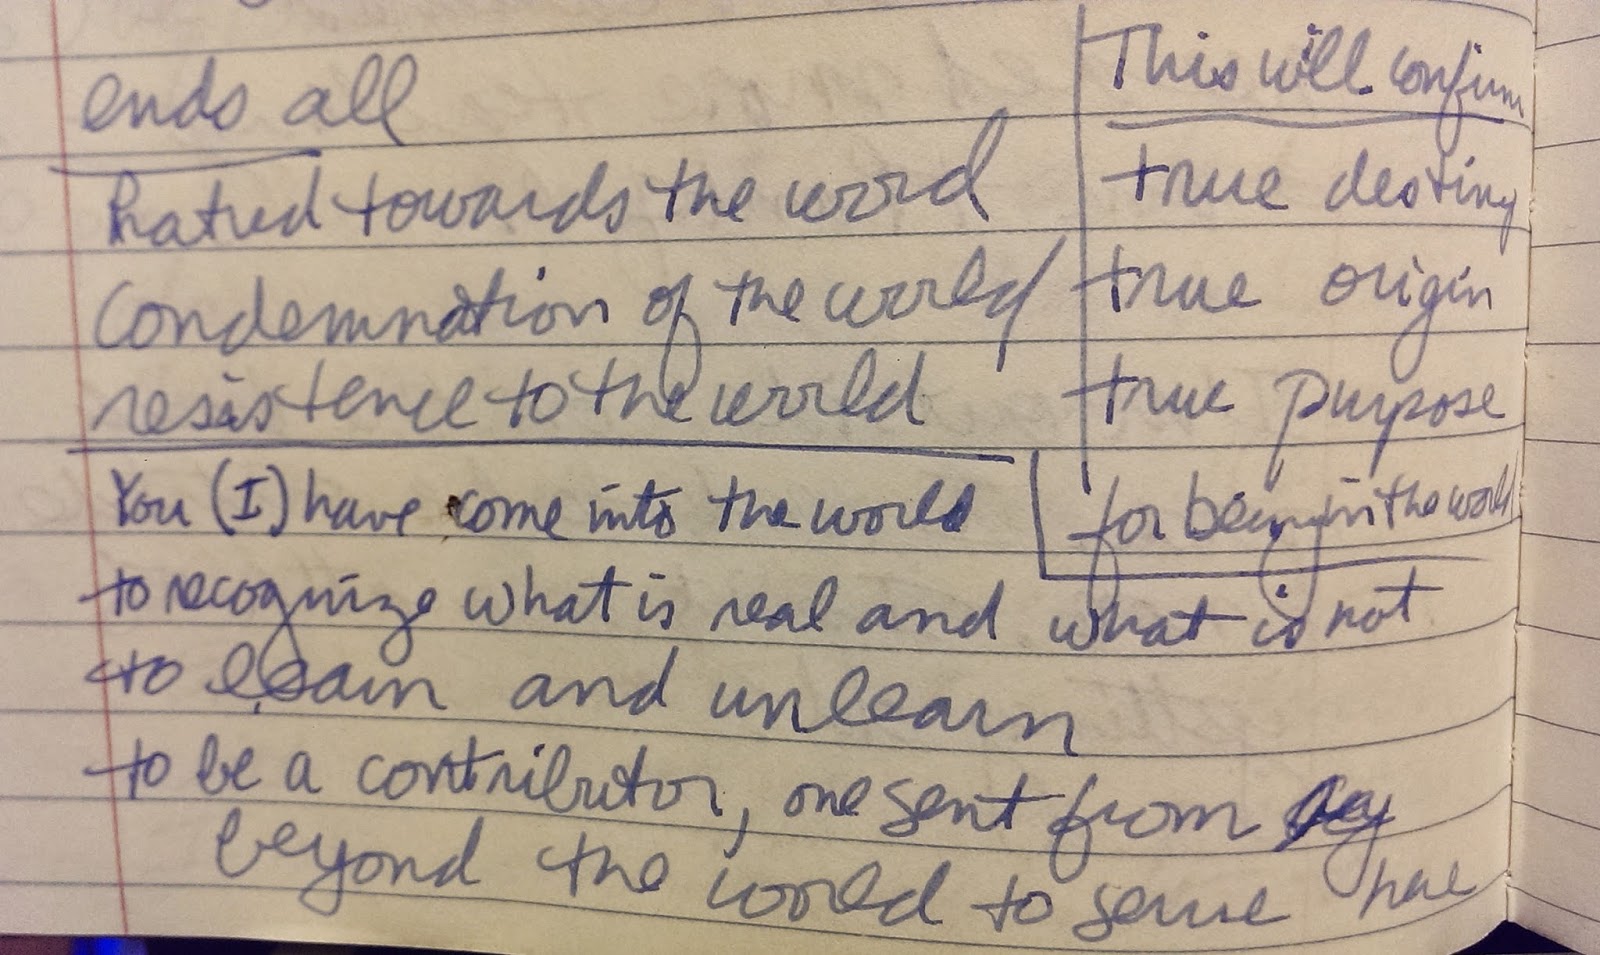 ends all
hatred towards the world
Condemnation of the world
resistence to the world
This will confirm
true destiny
true origin
true purpose
for being in the world
You (I) have come into the world
to recognize what is real and what is not
to learn and unlearn
to be a contributor, one sent from
beyond the world to serve here